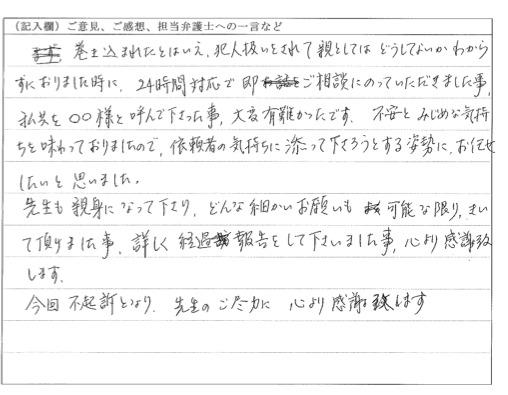 （記入欄）ご意見、ご感想、担当弁護士への一言など
巻き込まれたとはいえ、犯人扱いをされて親としては どうしてよいか わから
ずにおりました時に、24時間対応で 即 ご相談にのっていただきました事、
私共を 〇〇様と呼んで下さった事、大変有難かったです。 不安と みじめな気持
ちを味わっておりましたので、依頼者の気持ちに添って下さろうとする姿勢に、お任せ
したいと思いました。
先生も親身になって下さり、どんな細かいお願いも 可能な限り、きい
て頂けました事、詳しく 経過報告をして下さいました事、心より感謝致
します。
今回 不起訴となり、先生の ご尽力に 心より感謝致します